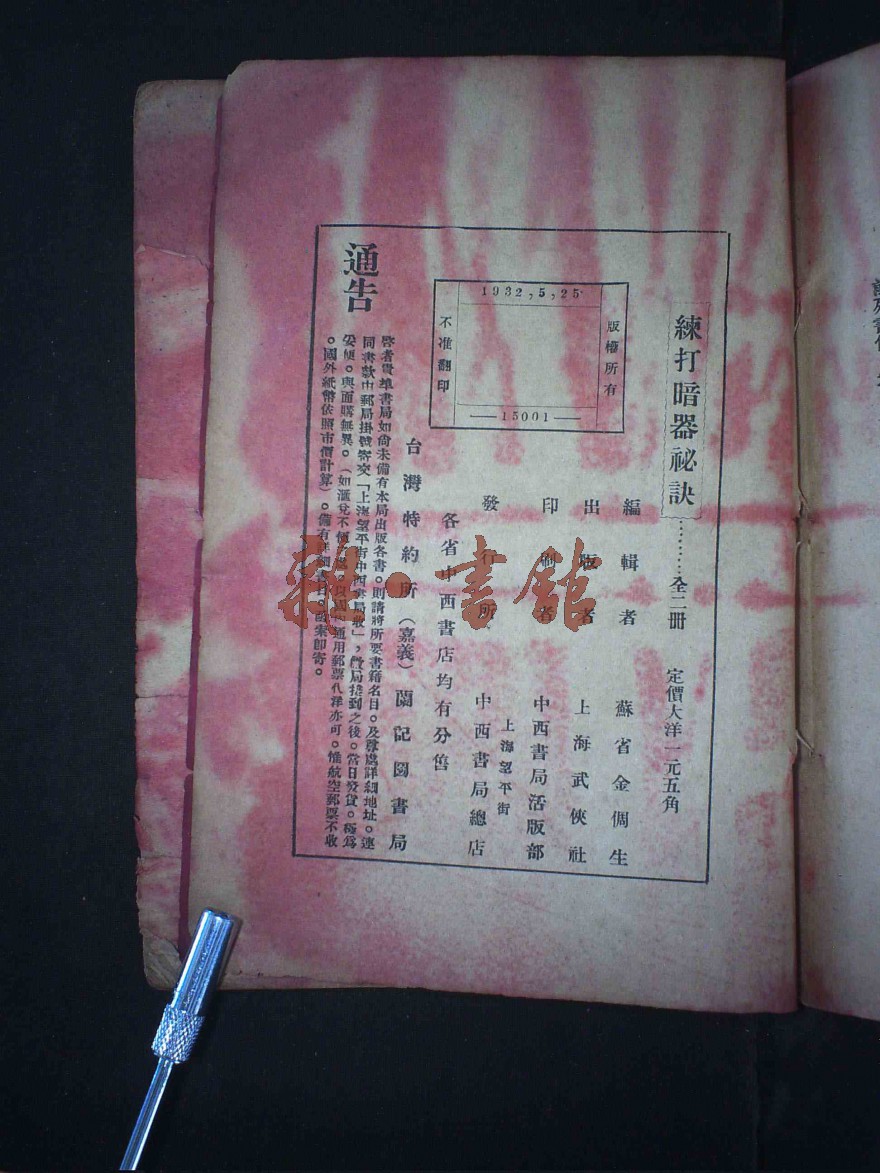 練打暗器祕訣…………全二冊　定價大洋一元五角
1932,5,25
版權所有
不准翻印
15001
編輯者　蘇省金倜生
出版者　上海武俠社
印刷者　中西書局活版部
發行所　上海望平街　中西書局總店
各省中西書店均有分售
台灣特約所（嘉義）蘭記圖書局
通告
啓者貴雄書局如尙未備有本局出版各書。則請將所要書籍名目。及尊處詳細地址。連
同書款由郵局掛號寄交「上海望平街中西書局收」，敝局接到之後。當日發貨。極爲
妥便。與面購無異。（如滙兌不便 以國 通用郵票代洋亦可。惟航空郵票不收
。國外紙幣依照市價計算）。備有詳細書目。函索卽寄。
書館